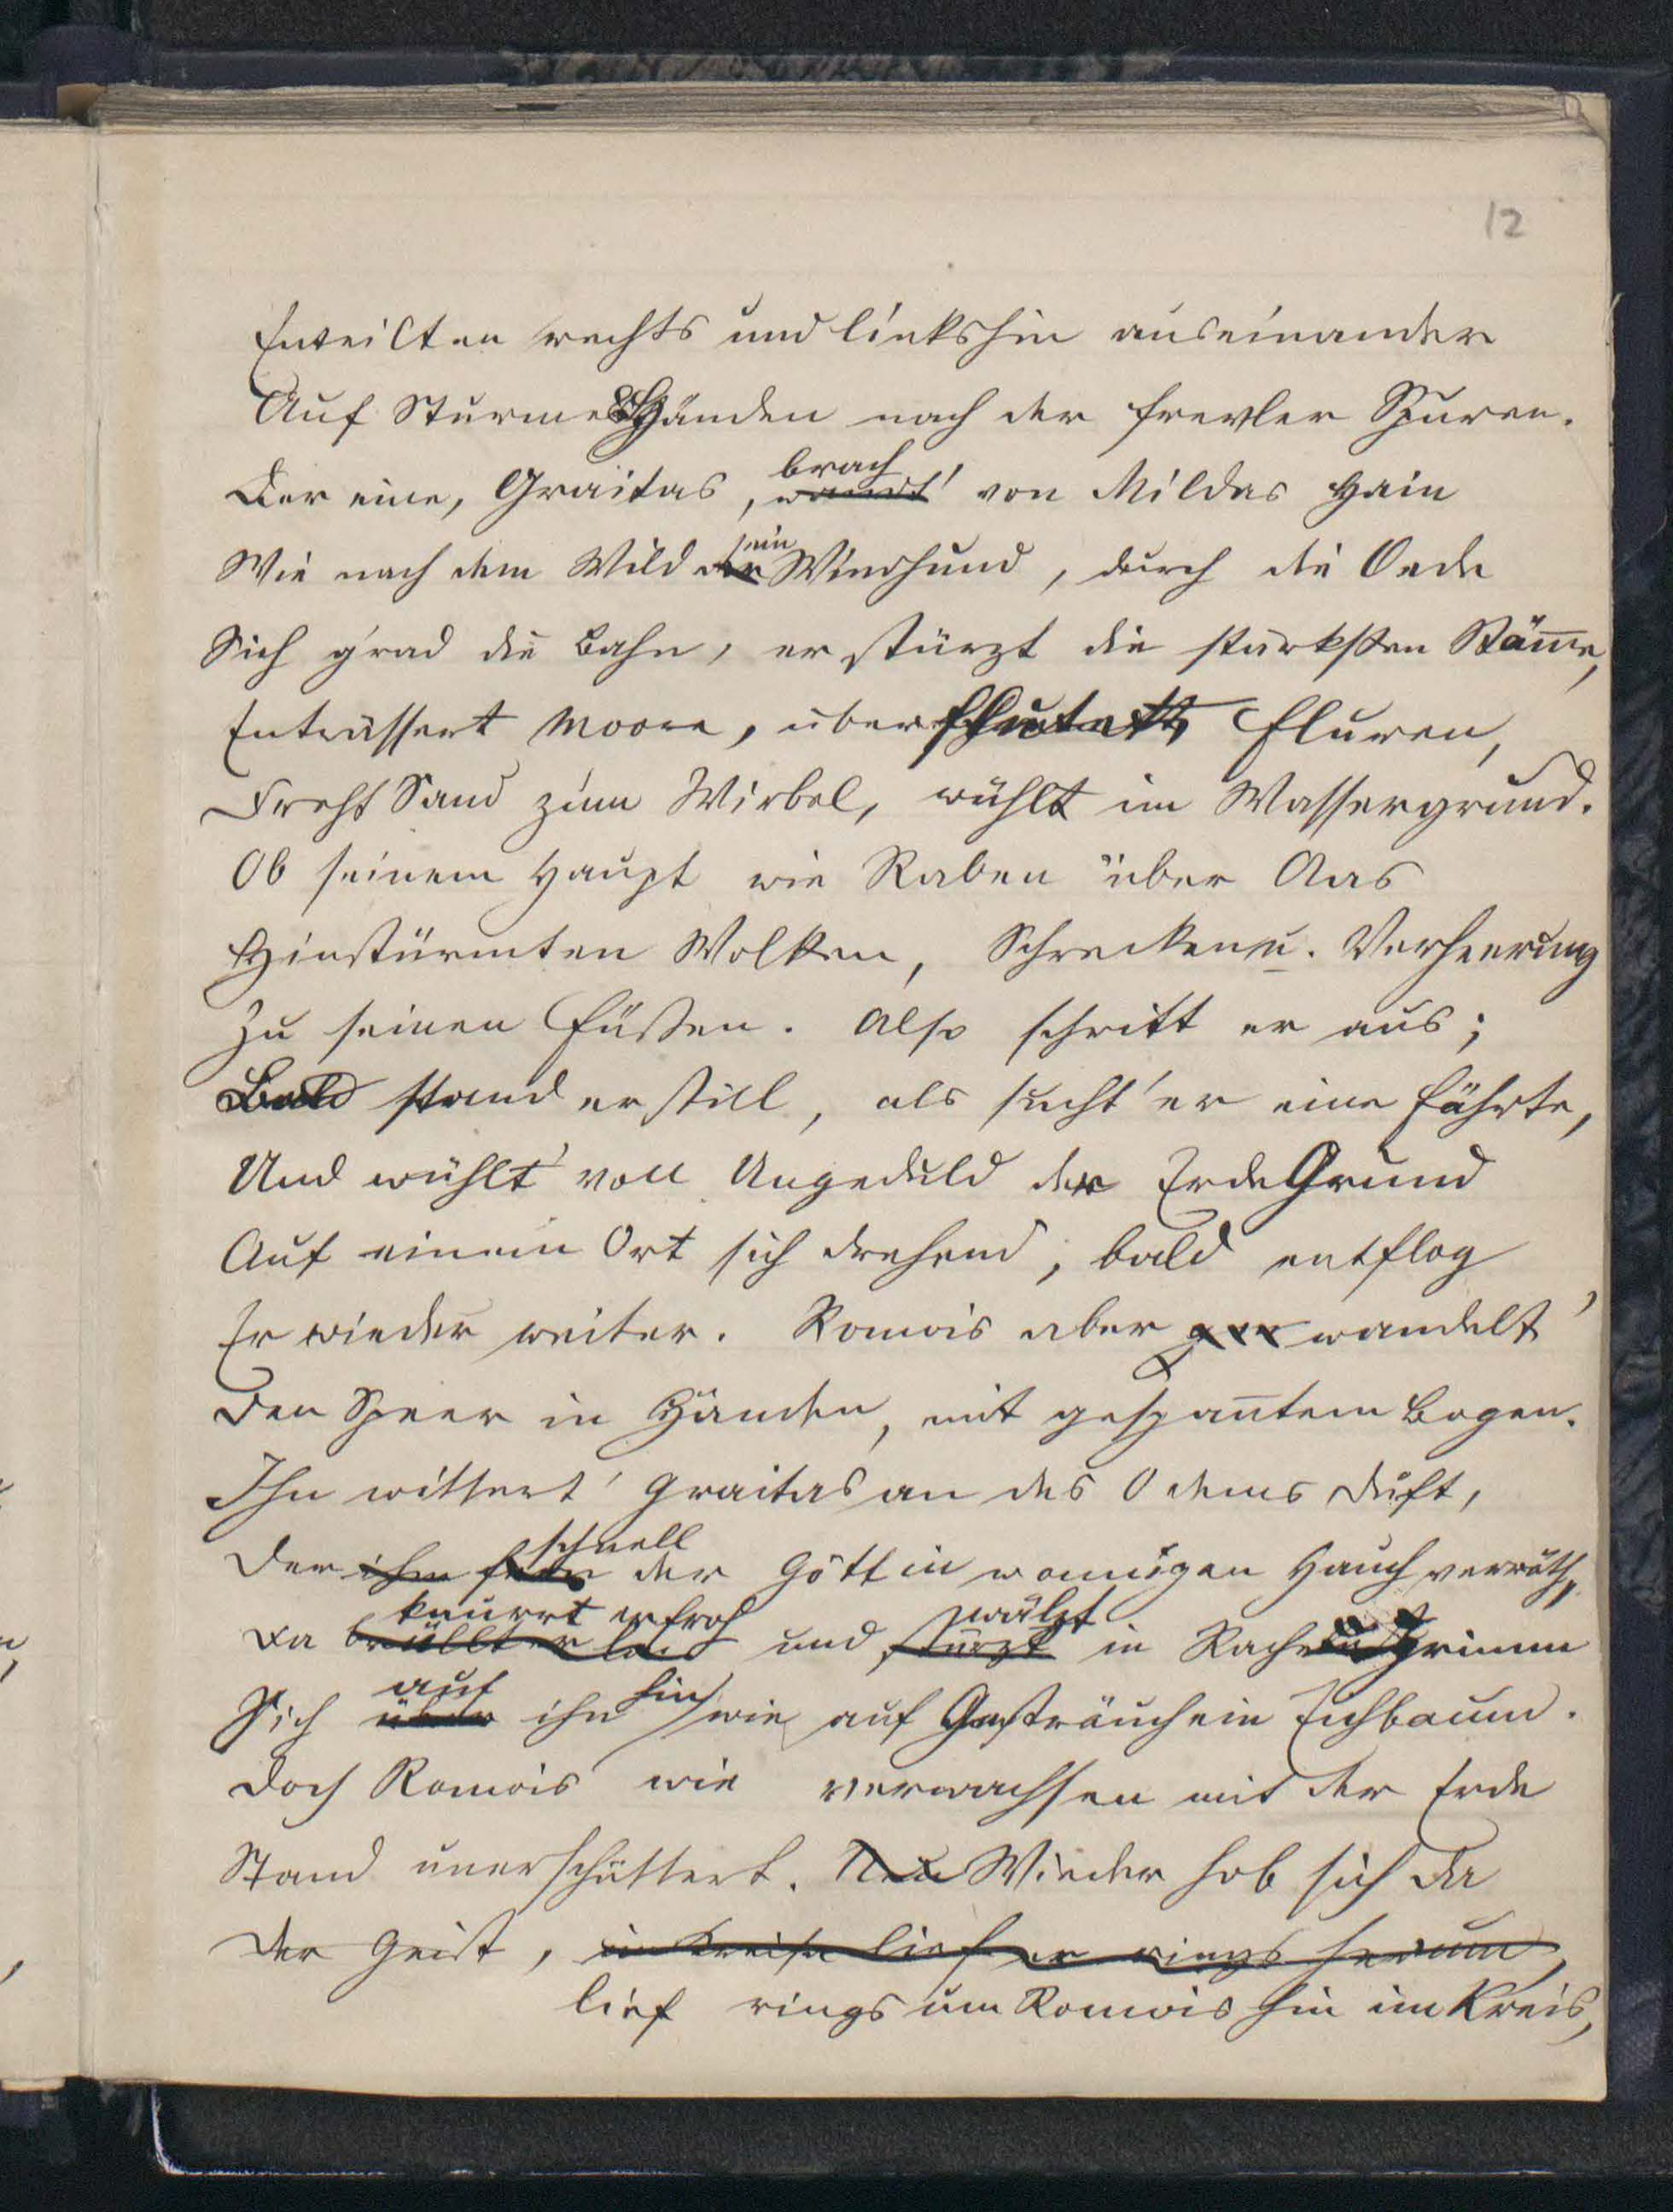 12
Enteilten rechts und linkshin auseinander
Auf Sturmes Händen nach der Frevler Spuren.
Der eine, Graitas, brach von Mildas Hain
Wie nach dem Wild ein Windhund, durch die Oede
Sich grad die Bahn, er stürzt die stärksten Stäm̅e,
Entwässert Moore, überfluthet Fluren,
Dreht Sand zum Wirbel, wühlt im Wassergrund.
Ob seinem Haupt wie Raben über Aas
Hinstürmten Wolken, Schrecken u. Verheerung
Zu seinen Füßen. Also schritt er aus;
Bald stand er still, als sucht' er eine Fährte,
Und wühlt' voll Ungeduld der Erde Grund
Auf einem Ort sich drehend, bald entflog
Er wieder weiter. Romois aber wandelt'
Den Speer in Händen, mit gespan̅tem Bogen.
Ihn wittert' Graitas an des Odems Duft,
Der ihm schnell der Göttin wonnigen Hauch verräth,
Da brüllt er laut knurrt er froh und stürzt wälzt in Rache Grimm
Sich über auf ihn hin, wie auf Gesträuch ein Eichbaum.
Doch Romois wie verwachsen mit der Erde
Stand unerschüttert. Nun Wieder hob sich da
Der Geist, im Kreise lief er rings herum,
lief rings um Romois hin im Kreis,